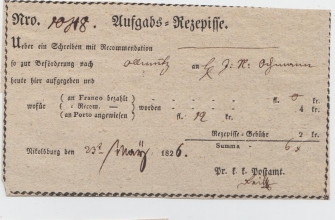 Nro. 1048. Aufgabs-Rezepisse.
Ueber ein Schreiben mit Recommendation
so zur Beförderung nach Ollmütz an
heute hier aufgegeben und
(an Franco bezahlt - - - - fl. kr.
wofür (= Recom. — worden - - - - 4 kr.
(an Porto angewiesen fl. 12 kr.
Rezepisse-Gebühr 2 kr.
Summa - 6 x
Nikolsburg den 23t März 1826.
Pr. k. k. Postamt.